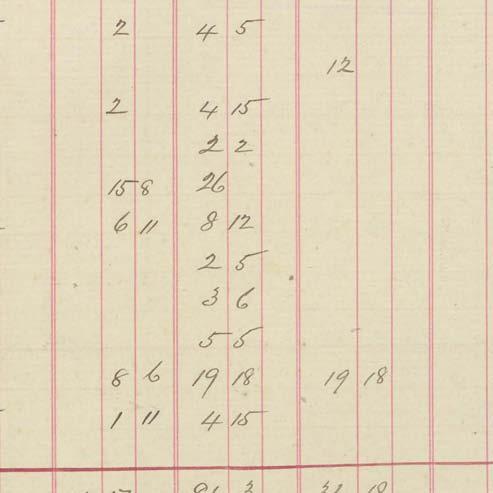 2 4 5
12
2 4 15
2 2
15 8 26
6 11 8 12
2 5
3 6
5 5
8 6 19 18 19 18
1 11 4 15